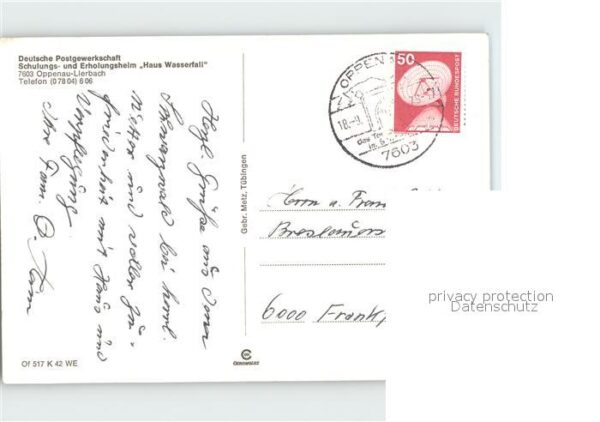 Deutsche Postgewerkschaft
Schulungs- und Erholungsheim „Haus Wasserfall"
7603 Oppenau-Lierbach
Telefon (0 78 04) 6 06
Herzl. Grüße aus dem
Schwarzwald bei herrl.
Wetter und voller Zu-
friedenheit mit Haus und
Verpflegung
Ihre Fam.
Of 517 K 42 WE
Gebr. Metz, Tübingen
OPPENAU
18.-9.
7603
50
DEUTSCHE BUNDESPOST
Herrn u. Frau
Breslauer
6000 Frank
privacy protection
Datenschutz